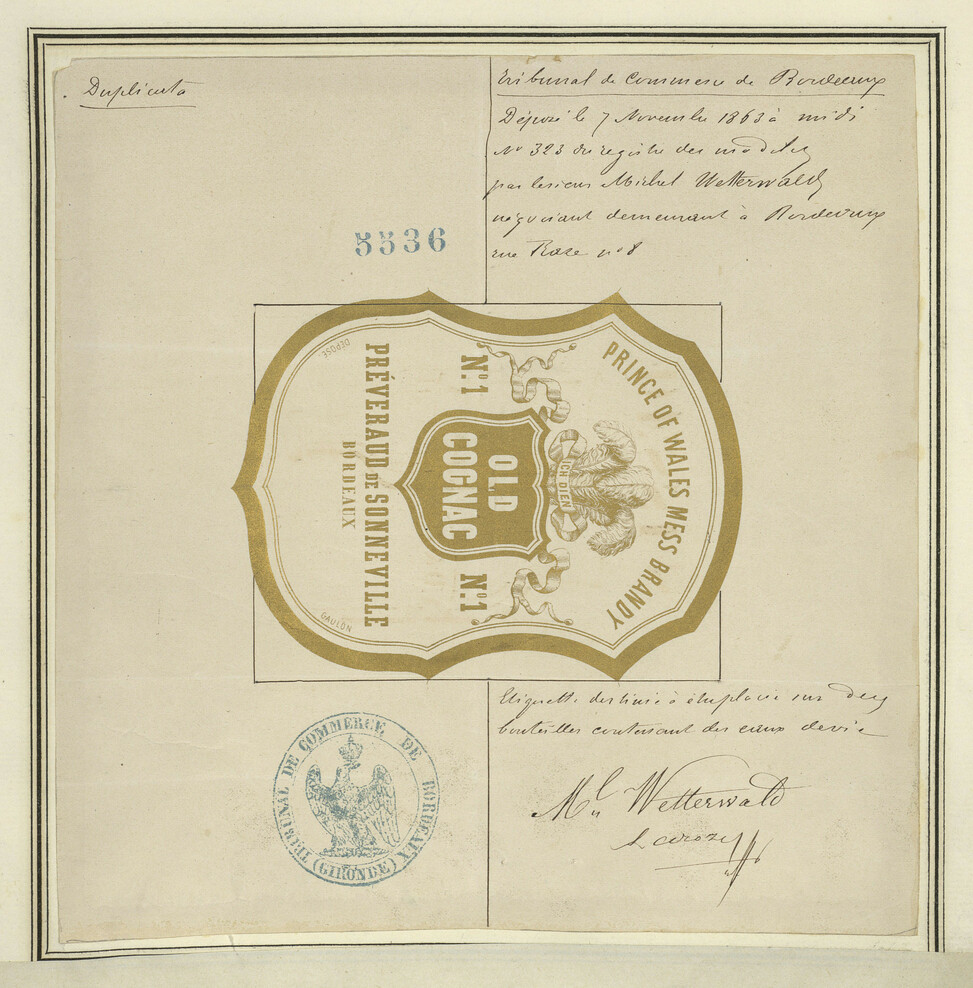 Duplicata
Tribunal de Commerce de Bordeaux
Déposé le 7 Novembre 1863 à midi
No 323 du registre des modèles
par le sieur Michel Wetterwald
négociant demeurant à Bordeaux
rue Raze no 8
5536
PRINCE OF WALES MESS BRANDY
ICH DIEN
No. 1 No. 1
OLD
COGNAC
PRÉVERAUD DE SONNEVILLE
BORDEAUX
DÉPOSÉ.
GAULON
Etiquette destinée à être placée sur des
bouteilles contenant des eaux de vie
Ml Wetterwald
TRIBUNAL DE COMMERCE DE BORDEAUX
(GIRONDE)